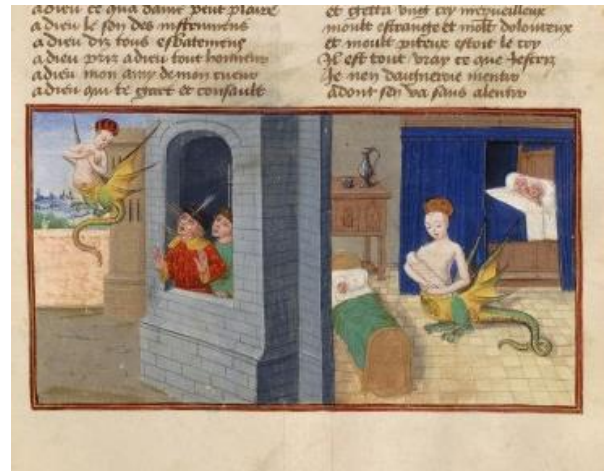 adieu ce qua dame peut plaire
adieu le son des instrumens
adieu diz tous esbatemens
adieu priz adieu tout honneur
adieu mon amy de mon cueur
adieu qui te gart et consault
et getta ung cry merveilleux
moult estrange et moult doloureux
et moult piteux estoit le cry
Il est tout vray ce que jescriz
Je nen daigneroie mentir
adont sen va sans alentir